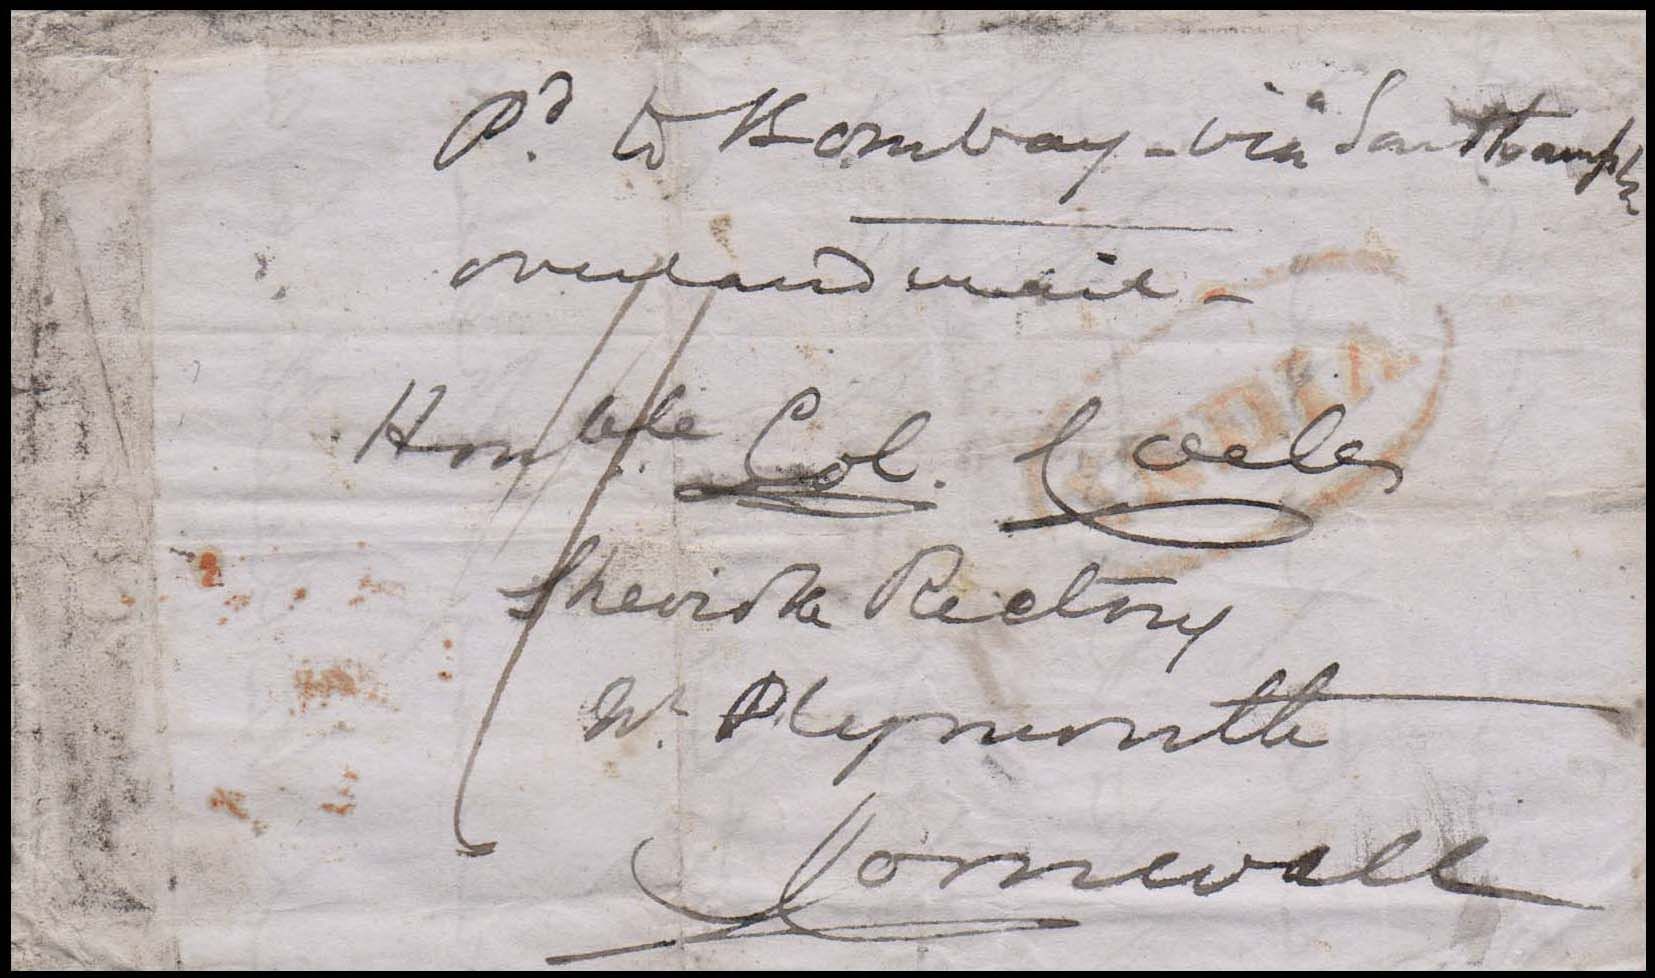 Pd. to Bombay - via Southampn
overland mail -
INDIA
Honble. Col.
Sheviocke Rectory
Nr. Plymouth
Cornwall
1/